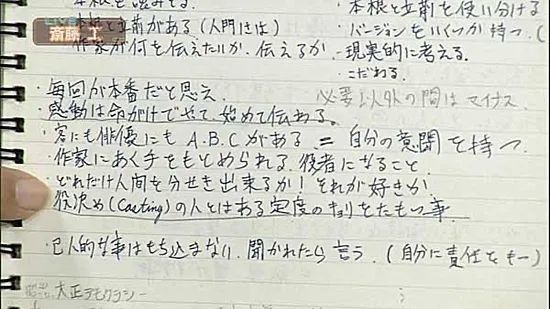 本根を読みとる
・本根と立前を使い分ける
LIVE
斎藤 工
本根と立前がある(人間には)
・バージョンをいくつか持つ。(
作家が何を伝えたいか、伝えるか
・現実的に考える。
・こだわる。
・毎回が本番だと思え。
必要以外の間はマイナス
・感動は命がけでやって、始めて伝わる。
・客にも俳優にもA.B.Cがある = 自分の意図を持つ。
・作家にあく手をもとめられる役者になること
・どれだけ人間を分せき出来るか!それが好きか
・役決め(Casting)の人とはある定度のキョリをたもつ事。
・己人的な事はもち込まない。聞かれたら言う。(自分に責任をもー)
大正デモクラシー